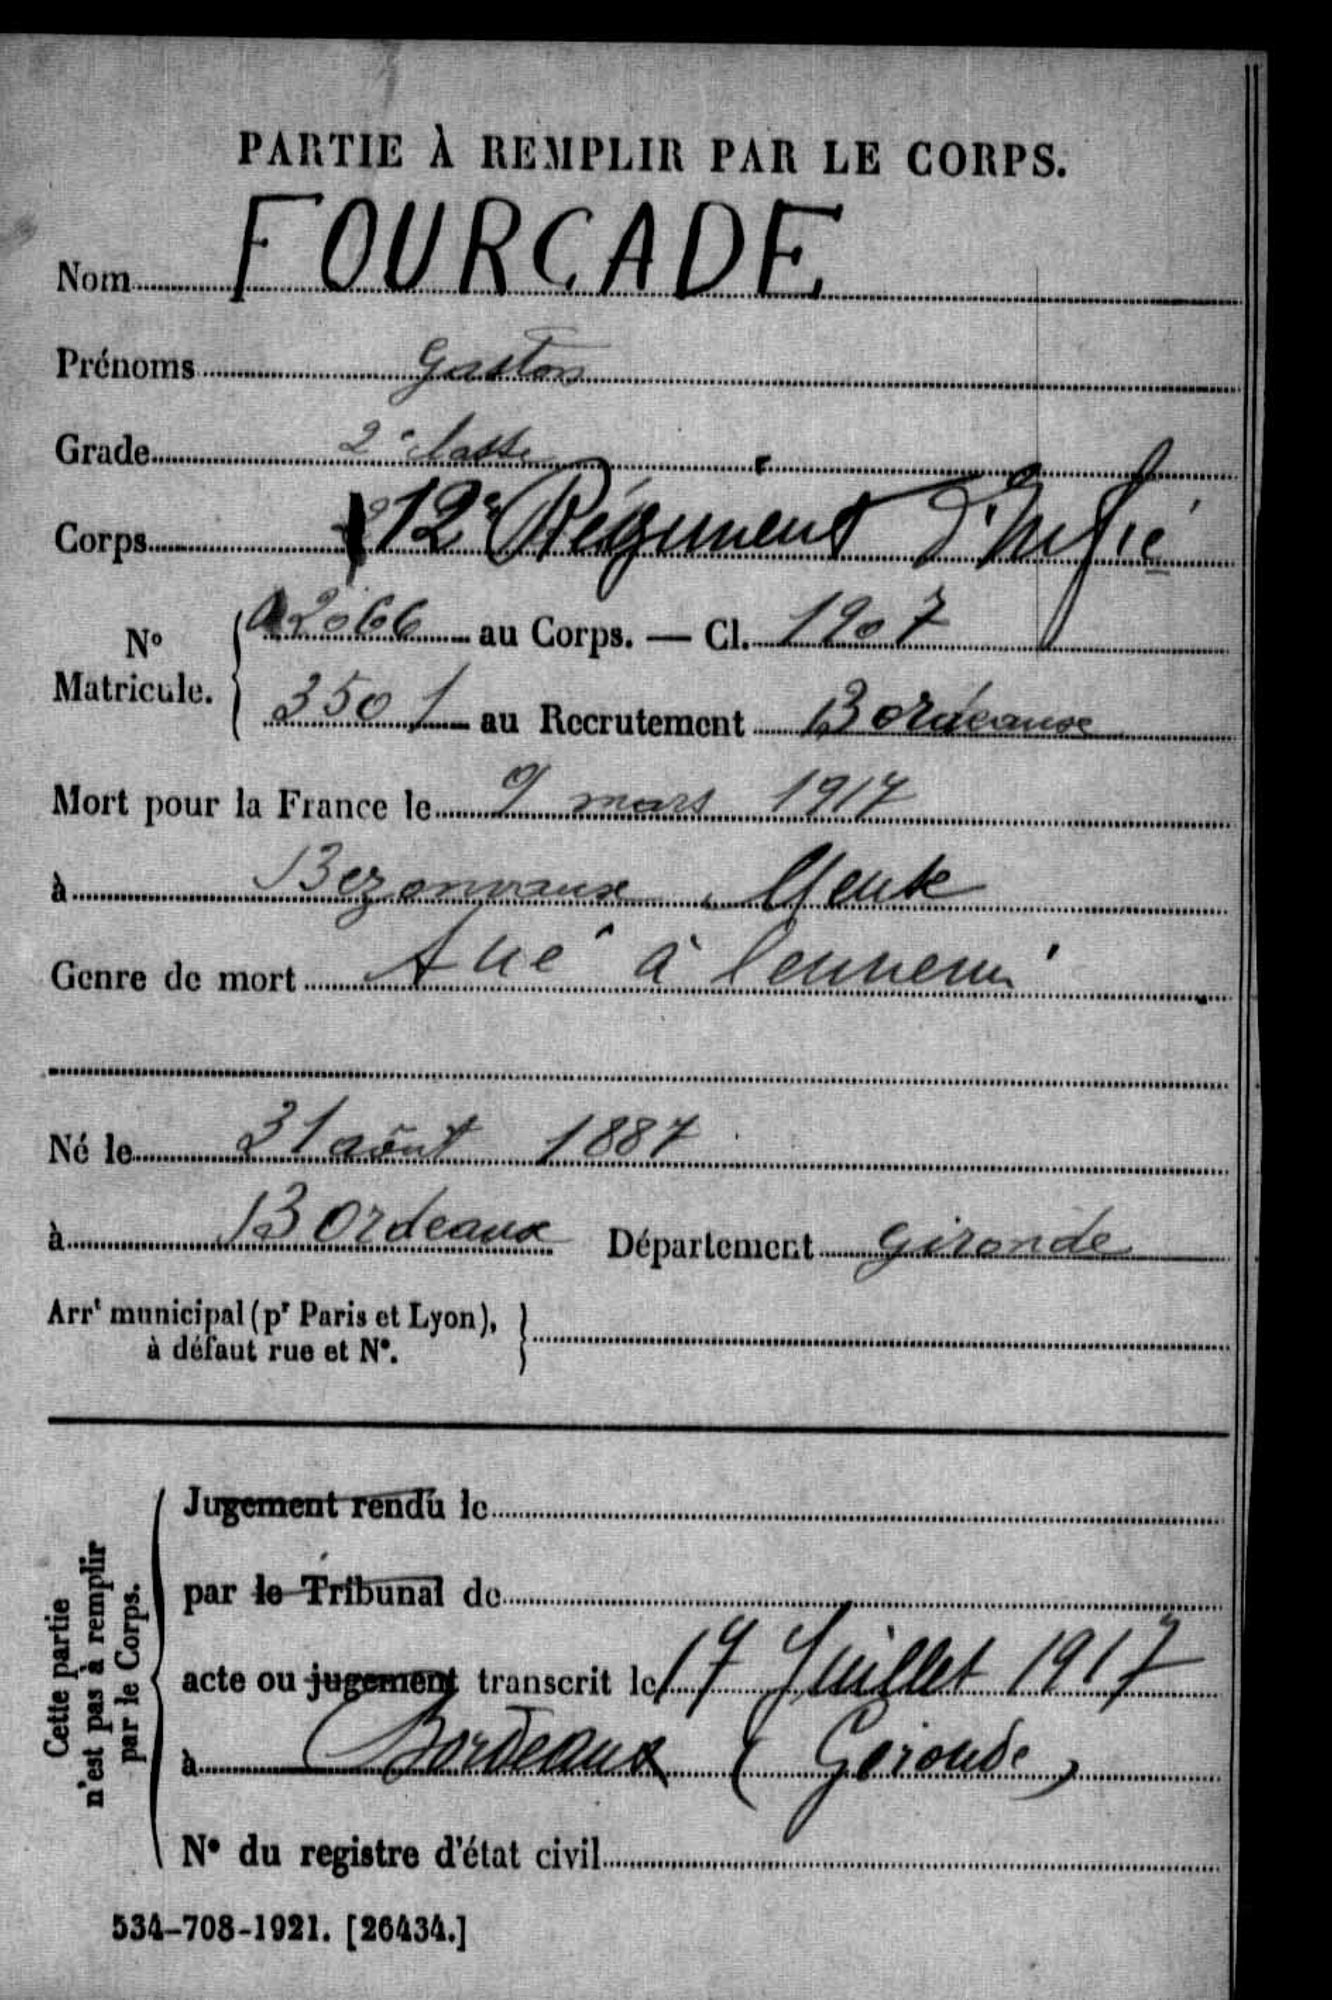 PARTIE À REMPLIR PAR LE CORPS.
Nom FOURCADE
Prénoms Gaston
Grade 2e classe
Corps 12e Régiment d'Infie
No Matricule. 2066 au Corps. — Cl. 1907
3501 au Recrutement Bordeaux
Mort pour la France le 9 mars 1917
à Bezonvaux Meuse
Genre de mort tué à l'ennemi
Né le 31 août 1887
à Bordeaux Département Gironde
Arrt municipal (pr Paris et Lyon),
à défaut rue et N°.
Cette partie
n'est pas à remplir
par le Corps.
Jugement rendu le
par le Tribunal de
acte ou jugement transcrit le 17 Juillet 1917
à Bordeaux (Gironde)
N° du registre d'état civil
534-708-1921. [26434.]